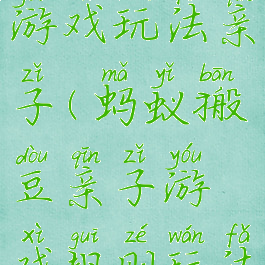 游戏玩法亲
zǐ mǎ yǐ bān
子(蚂蚁搬
dòu qīn zǐ yóu
豆亲子游
xì guī zé wán fǎ
戏规则玩法